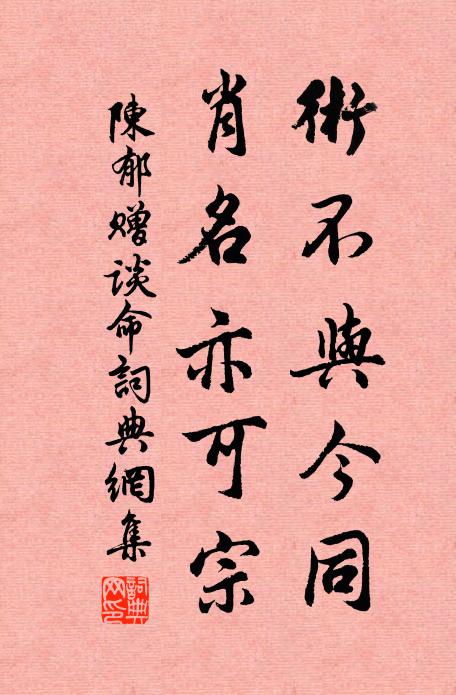 術不與今同
肖名亦可宗
陳郁贈談命詞典網集
詞典
网印